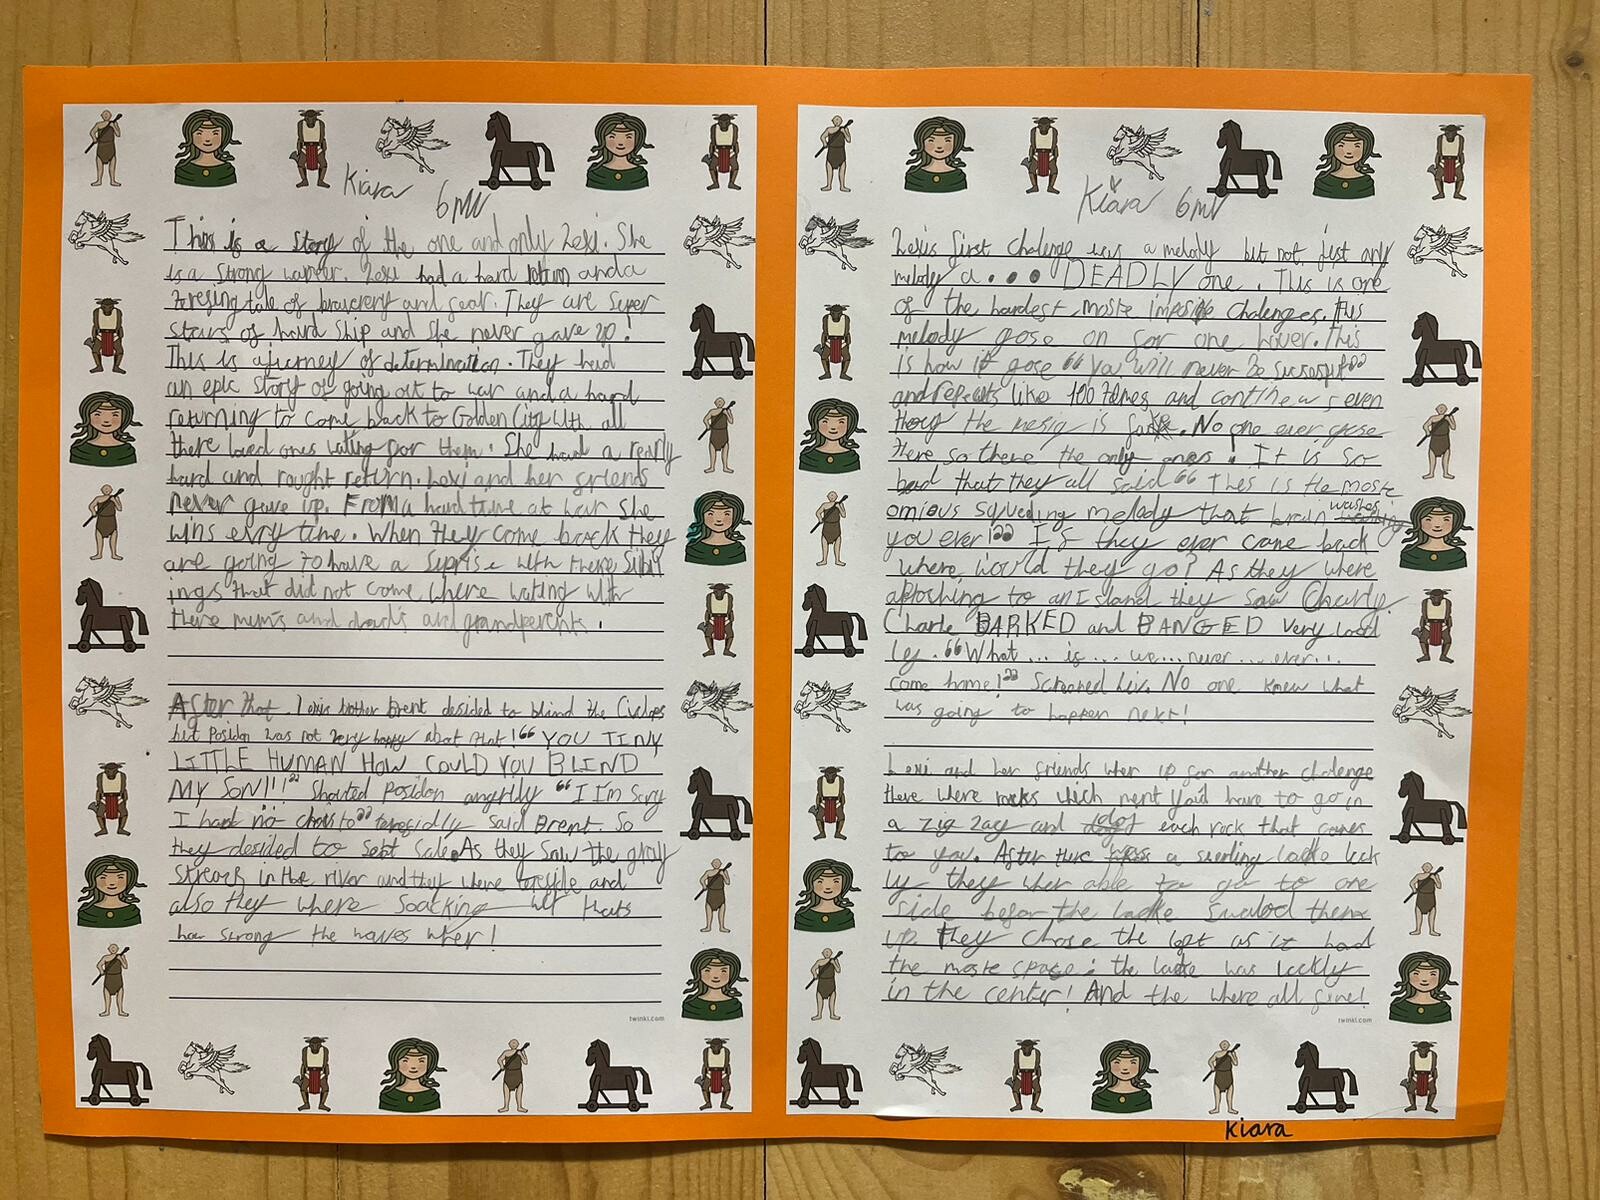 Kiara
6MV
This is a story of the one and only Lexi. She
is a strong warior. Lexi had a hard return and a
of bravery and fear. They are super
stars of hard ship and she never gave up!
This is a journey of determination. They had
an epic story of going out to war and a hard
returning to come back to Golden City with all
there loved ones waiting for them. She had a really
hard and rought return. Lexi and her friends
never gave up. From a hard time at war she
wins evry time. When they come back they
are going to have a Suprise with there Sibli
ings that did not come where wating with
there mum's and dad's and grandperents.
After that. Lexis bother Brent decided to blind the Cyclops
but Posidon was not very happy about that! "YOU TINY
LITTLE HUMAN HOW COULD YOU BLIND
MY SON!!!" Shouted Posidon angrily "I I'm Sory
I had no" said Brent. So
they decided to set sale. As they saw the
in the river and they where and
also they where Soacking wet thats
how strong the waves wher!
Kiara 6MV
Lexis first challenge was a melody but not just any
melody a... DEADLY one. This is one
of the hardest moste challenges. This
melody gose on for one hover. This
is how it gose "you will never Be sucsesful"
and repeats like 100 times and continews even
the mesig is fake. No one ever gose
there so there the only ones! It is so
bad that they all said "This is the moste
omious melody that brain washes
you ever!" If they ever came back
where would they go? As they where
to an Island they saw Charly.
Charle BARKED and BANGED very loud
ley. "What... is... we... never... ever...
come home!" Screamed Lexi. No one knew what
was going to happen next!
Lexi and her friends wher up for another challenge
there where rocks which ment you'd have to go in
a zig zag and dodg each rock that comes
to you. After there was a lacke luck
ly they wher able to go to one
side befor the lacke swalod them
up. They chose the left as it had
the moste space; the lacke was luckly
in the center! And the where all fine!
twinkl.com
twinkl.com
Kiara